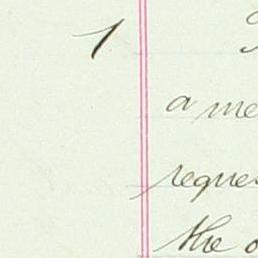 1
a me
reques
the o